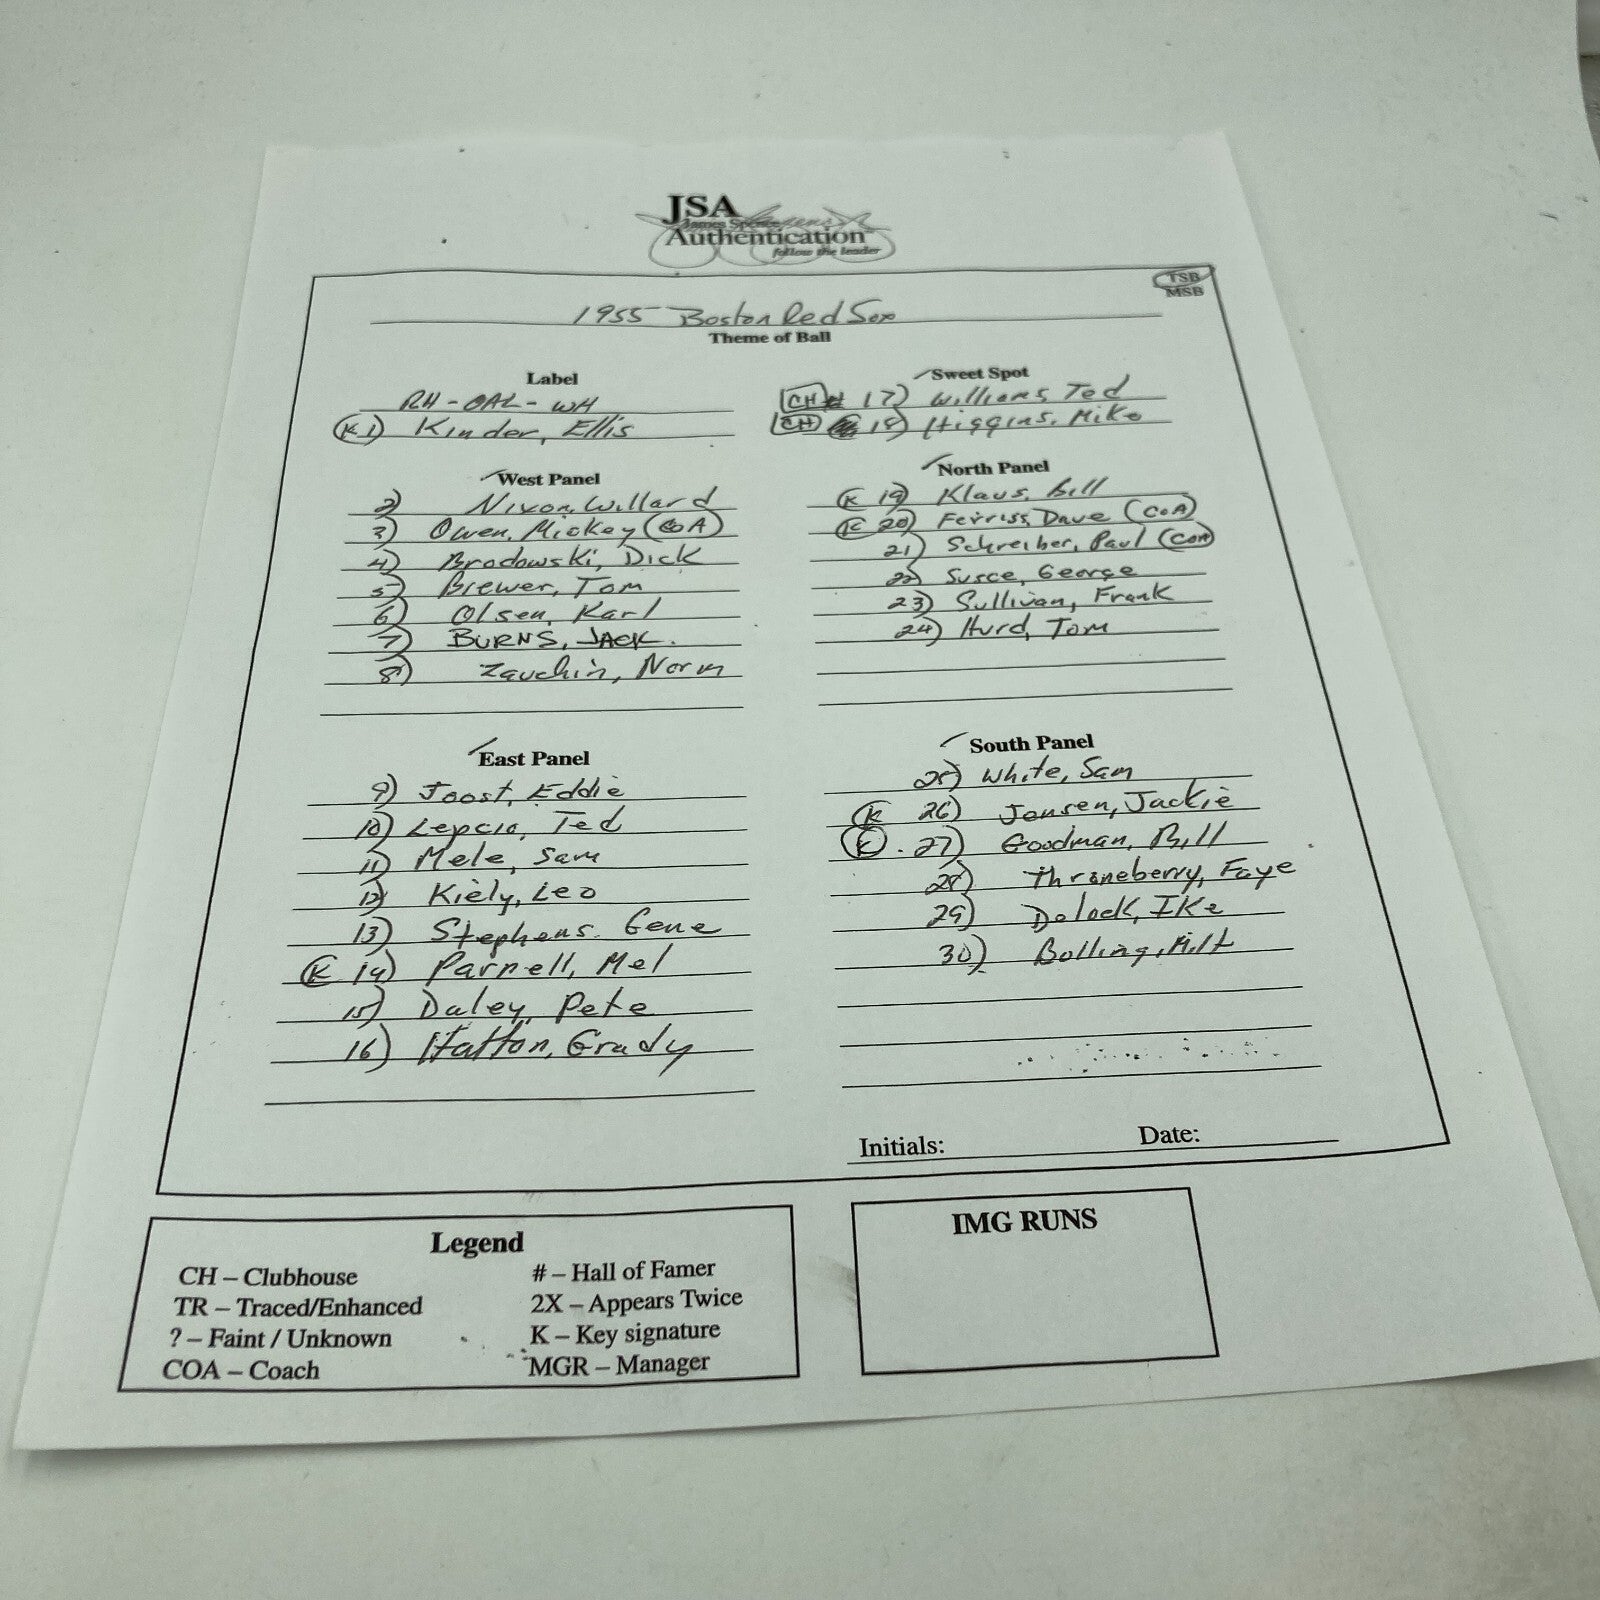 JSA
James Spence
Authentication
follow the leader
TSB
MSB
1955 Boston Red Sox
Theme of Ball
Label
RH - OAL - WH
K 1) Kinder, Ellis
Sweet Spot
CH # 17) Williams, Ted
CH 18) Higgins, Mike
West Panel
2) Nixon, Willard
3) Owen, Mickey (COA)
4) Brodowski, Dick
5) Brewer, Tom
6) Olsen, Karl
7) BURNS, JACK.
8) Zauchin, Norm
North Panel
K 19) Klaus, Bill
K 20) Ferriss, Dave (COA)
21) Schreiber, Paul (COA)
22) Susce, George
23) Sullivan, Frank
24) Hurd, Tom
East Panel
9) Joost, Eddie
10) Lepcio, Ted
11) Mele, Sam
12) Kiely, Leo
13) Stephens, Gene
K 14) Parnell, Mel
15) Daley, Pete
16) Hatton, Grady
South Panel
25) White, Sam
K 26) Jensen, Jackie
K. 27) Goodman, Bill
28) Throneberry, Faye
29) Delock, Ike
30) Bolling, Milt
Initials: Date:
Legend
CH – Clubhouse
TR – Traced/Enhanced
? – Faint / Unknown
COA – Coach
# – Hall of Famer
2X – Appears Twice
K – Key signature
MGR – Manager
IMG RUNS